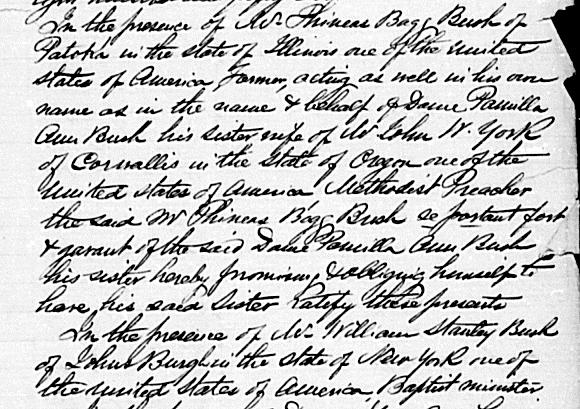 In the presence of Mr. Phineas Bagg Bush of
Patoka in the state of Illinois one of the united
states of America Farmer, acting as well in his own
name as in the name & behalf of Dame Pamilla
Ann Bush his sister wife of Mr John W. York
of Corvallis in the State of Oregon one of the
United States of America Methodist Preacher
the said Mr Phineas Bagg Bush se portant fort
& garant of the said Dame Pamilla Ann Bush
his sister hereby promising & obliging himself to
have his said Sister Ratify these presents
In the presence of Mr William Stanley Bush
of Johns Burgh in the State of New York one of
the united states of America, Baptist minister